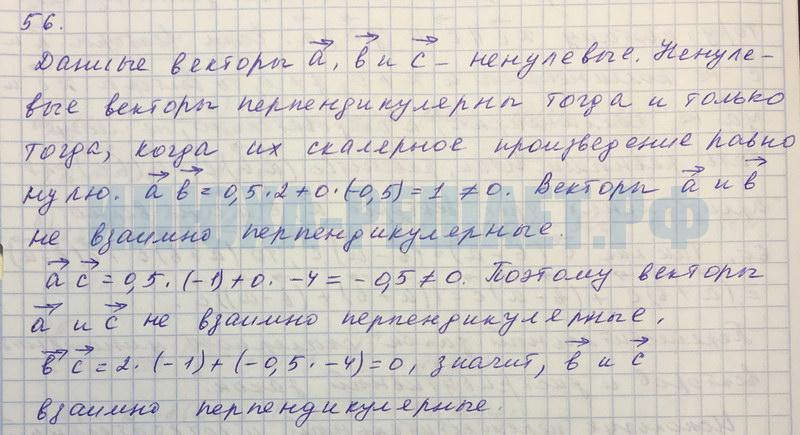 56.
Данные векторы a⃗, b⃗ и c⃗ – ненулевые. Ненуле-
вые векторы перпендикулерны тогда и только
тогда, когда их скалерное произведение равно
нулю. a⃗ b⃗ = 0,5·2+0·(-0,5)=1 ≠0. Векторы a⃗ и b⃗
не взаимно перпендикулерные.
a⃗ c⃗ = 0,5·(-1)+0·-4=-0,5≠0. Поэтому векторы
a⃗ и c⃗ не взаимно перпендикулерные,
b⃗ c⃗ = 2·(-1)+(-0,5·-4)=0, значит, b⃗ и c⃗
взаимно перпендикулерные.